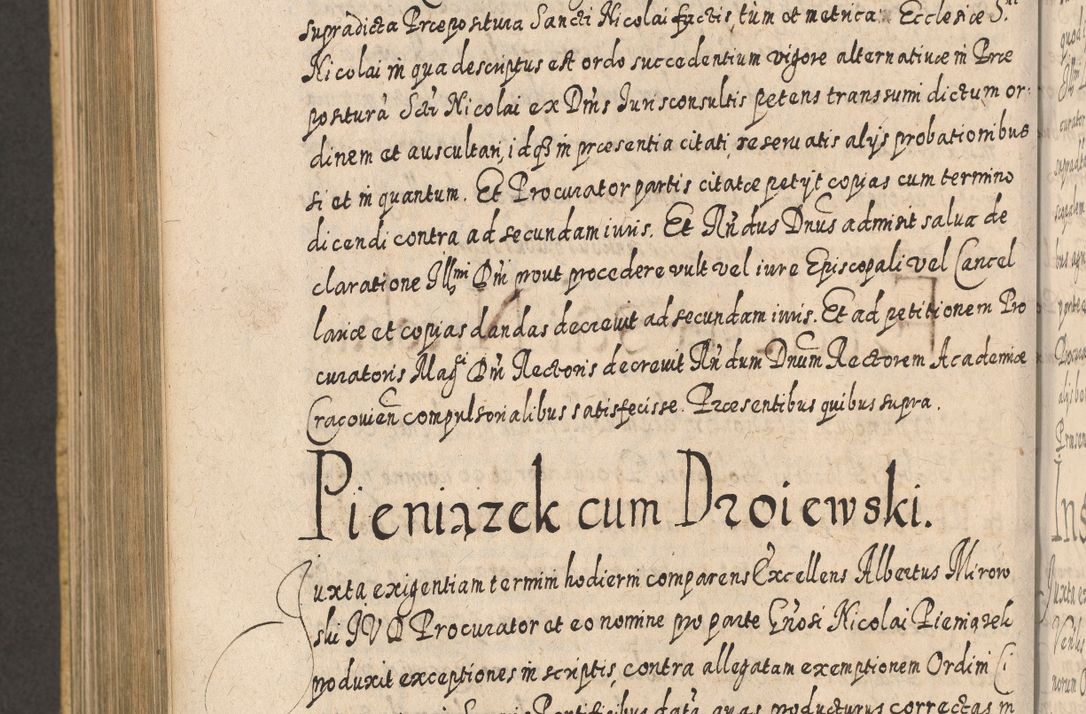 supradicta Præpositura Sancti Nicolai factis, tum et metrica Ecclesiæ Sti
Nicolai in qua descriptus est ordo succedentium vigore alternativæ in Præ
positura Scti Nicolai ex Dnis Jurisconsultis petens transsumi dictum or:
dinem et auscultari, idq3 in præsentia citati, reservatis alijs probationibus
si et in quantum. Et Procurator partis citatæ petijt copias cum termino
dicendi contra ad secundam iuris. Et Rndus Dnus admisit salva de
claratione Illmi Dni prout procedere vult vel iure Episcopali vel Cancel
lariæ et copias dandas decrevit ad secundam iuris. Et ad petitionem Pro
curatoris Magci Dni Rectoris decrevit Rndum Dnum Rectorem Academiæ
Cracovien compulsorialibus satisfecisse. Præsentibus quibus supra.
Pieniązek cum Droiewski.
Juxta exigentiam termini hodierni comparens Excellens Albertus Mirow
ski JVD Procurator et eo nomine pro parte Gnosi Nicolai Pieniązek
produxit exceptiones in scriptis, contra allegatam exemptionem Ordini Ci
Pontificibus data, quas producturus correctas in